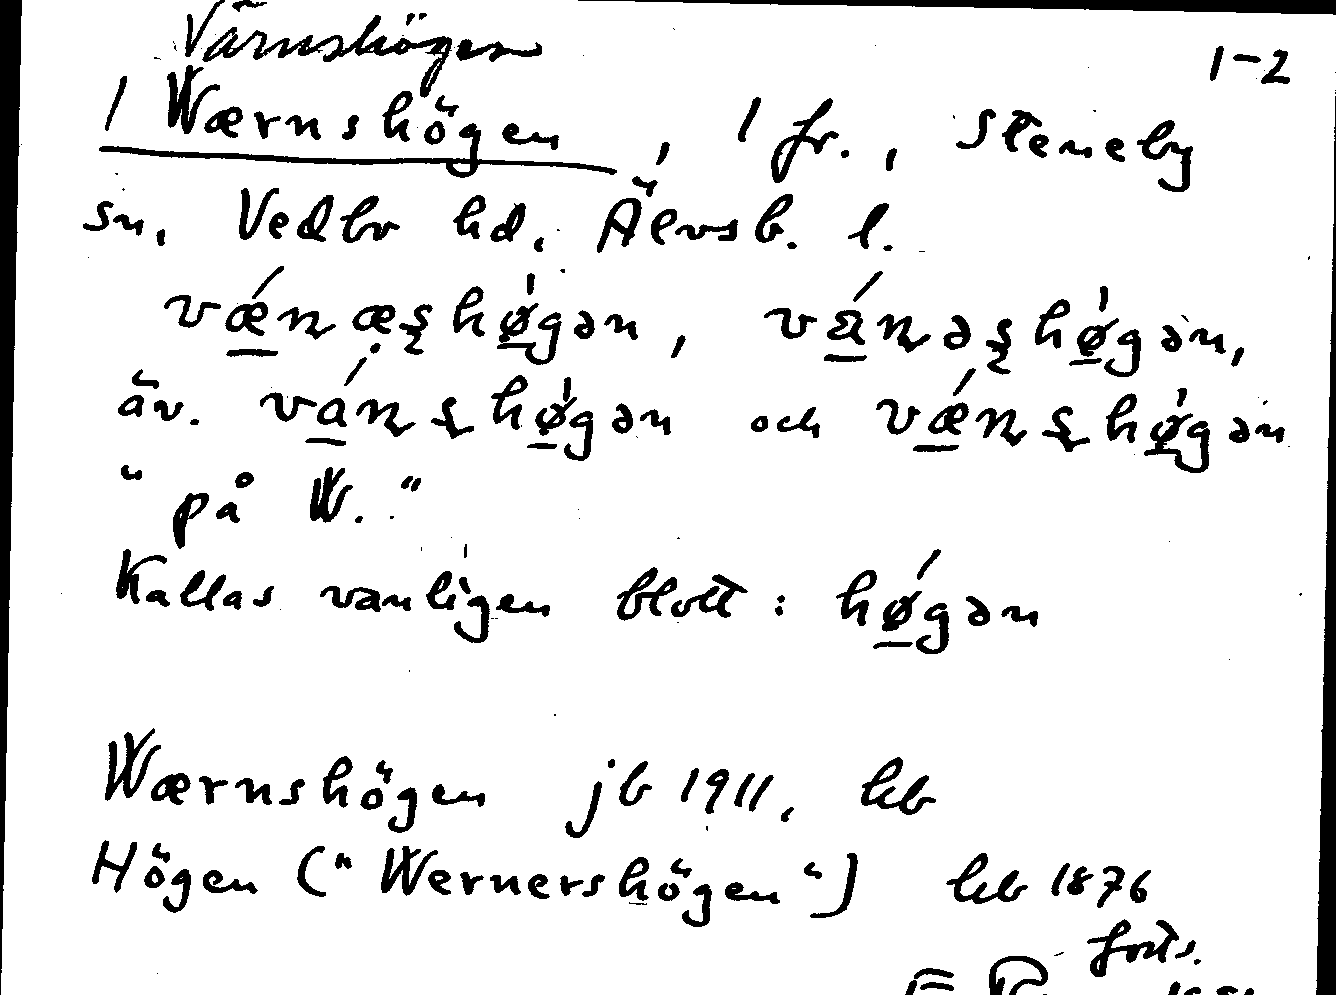 Värnshögen
1-2
1 Wærnshögen, 1 fr., Steneby
sn, Vedbo hd. Älvsb. l.
vǽnæshø̍gən, vánəshø̍gən,
äv. vánshø̍gən och vǽnshø̍gən
"på W."
Kallas vanligen blott: hǿgən
Wærnshögen jb 1911, kb
Högen ("Wernershögen") kb 1876
forts.